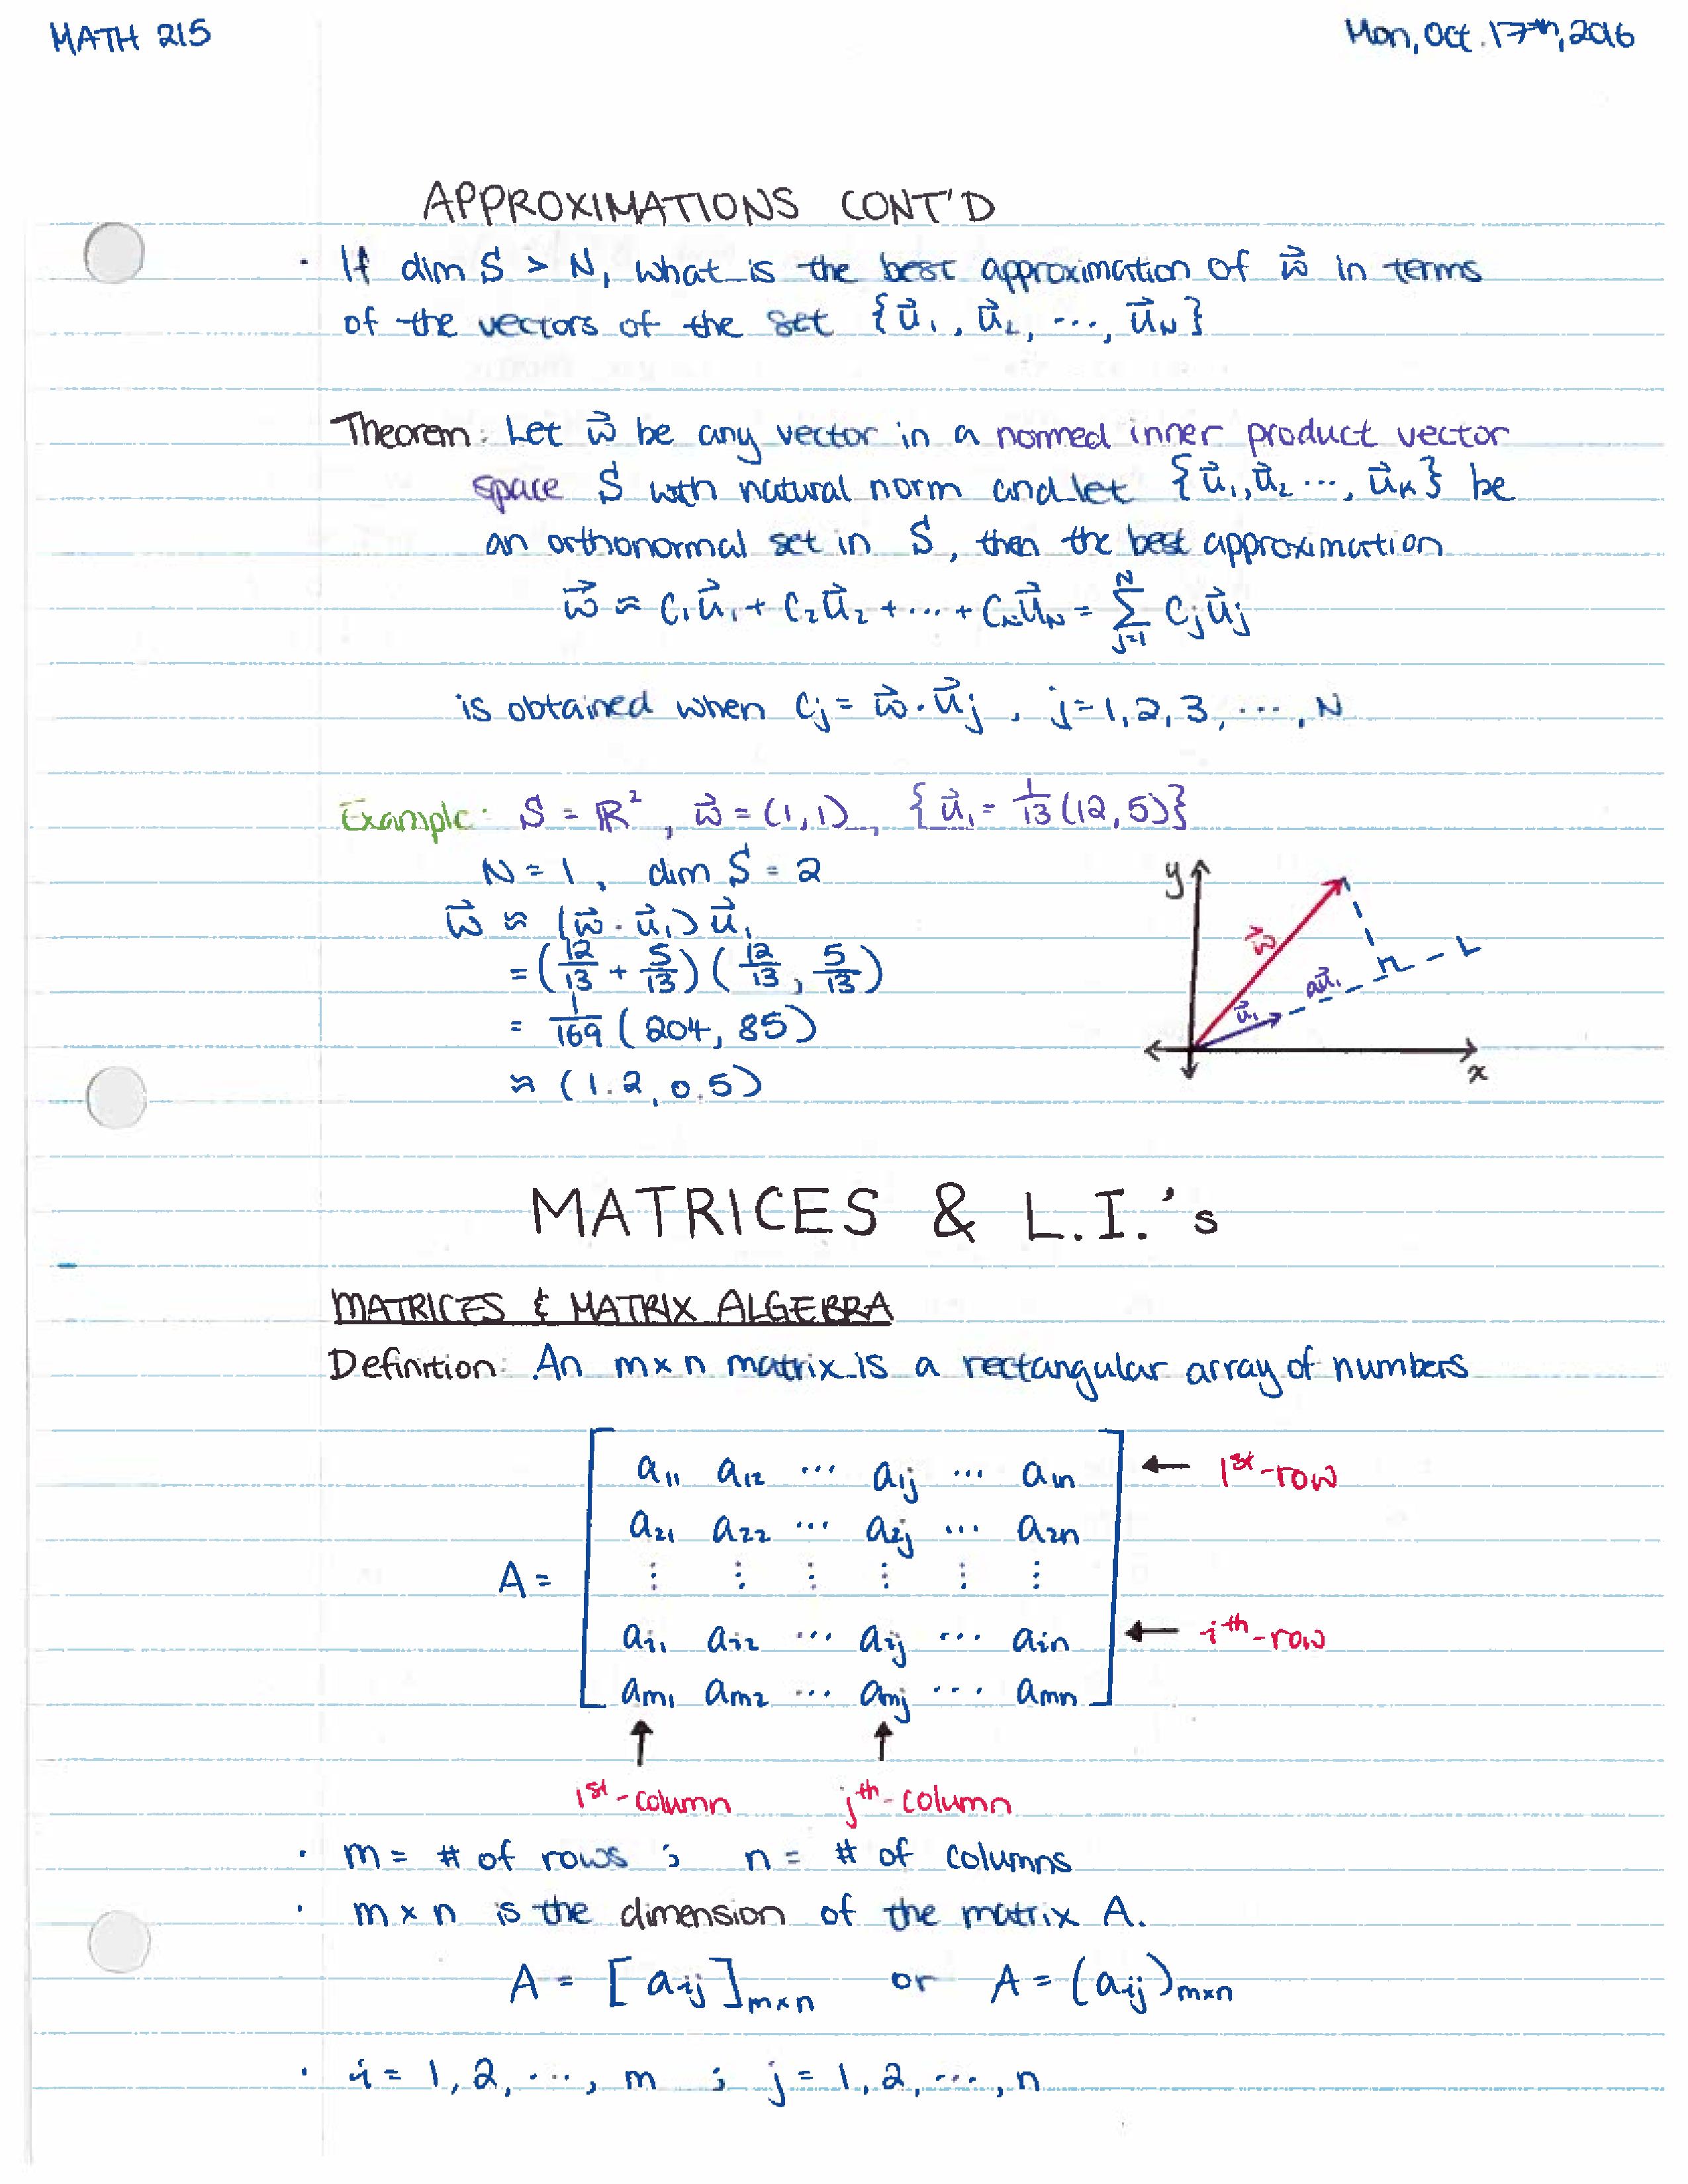 MATH 215
Mon, Oct. 17th, 2016
APPROXIMATIONS CONT'D
· If dim S > N, what is the best approximation of w⃗ in terms
of the vectors of the set {u⃗₁, u⃗₂, ..., u⃗N}
Theorem: Let w⃗ be any vector in a normed inner product vector
space S with natural norm and let {u⃗₁, u⃗₂ ..., u⃗N} be
an orthonormal set in S, then the best approximation
w⃗ ≈ c₁u⃗₁ + c₂u⃗₂ + ... + cNu⃗N = ∑ⱼ₌₁ᴺ cⱼu⃗ⱼ
is obtained when cⱼ = w⃗ · u⃗ⱼ, j = 1, 2, 3, ..., N
Example: S = ℝ², w⃗ = (1, 1), {u⃗₁ = 1/13 (12, 5)}
N = 1, dim S = 2
w⃗ ≈ (w⃗ · u⃗₁) u⃗₁
= (12/13 + 5/13) (12/13, 5/13)
= 1/169 (204, 85)
≈ (1.2, 0.5)
y
w⃗
u⃗₁
au⃗₁
L
x
MATRICES & L.I.'s
MATRICES & MATRIX ALGEBRA
Definition: An m×n matrix is a rectangular array of numbers
a₁₁ a₁₂ ... a₁ⱼ ... a₁ₙ ← 1st-row
a₂₁ a₂₂ ... a₂ⱼ ... a₂ₙ
A = ⋮ ⋮ ⋮ ⋮ ⋮ ⋮
aᵢ₁ aᵢ₂ ... aᵢⱼ ... aᵢₙ ← ith-row
aₘ₁ aₘ₂ ... aₘⱼ ... aₘₙ
↑ ↑
1st-column jth-column
· m = # of rows ; n = # of columns
· m×n is the dimension of the matrix A.
A = [aᵢⱼ]m×n or A = (aᵢⱼ)m×n
· i = 1, 2, ..., m ; j = 1, 2, ..., n